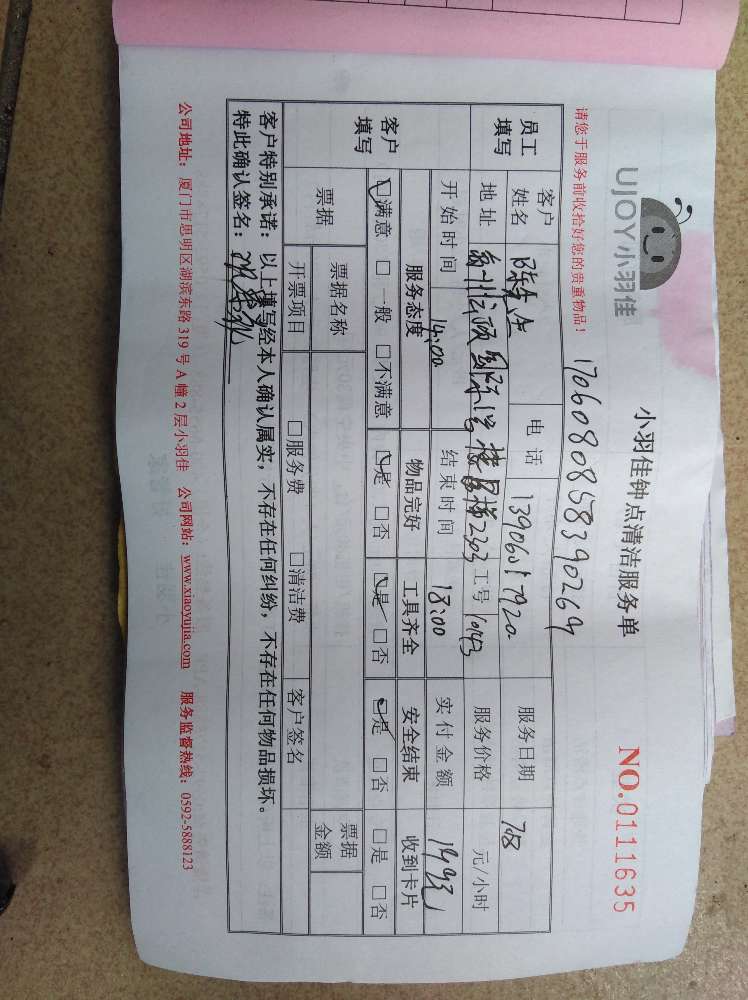 UJOY小羽佳
小羽佳钟点清洁服务单
NO.0111635
请您于服务前收拾好您的贵重物品！
1706080858390269
员工填写
客户姓名 电话 13906017920 服务日期 7.8
地址 国际 2303 工号 服务价格 元/小时
开始时间 14:00 结束时间 18:00 实付金额
客户填写
服务态度 物品完好 工具齐全 安全结束 收到卡片
☑满意 □一般 □不满意 ☑是 □否 ☑是 □否 ☑是 □否 □是 □否
票据 票据名称 票据金额
开票项目 □服务费 □清洁费 客户签名
客户特别承诺：以上填写经本人确认属实，不存在任何纠纷，不存在任何物品损坏。
特此确认签名：
公司地址：厦门市思明区湖滨东路319号A幢2层小羽佳 公司网站：www.xiaoyujia.com 服务监督热线：0592-5888123